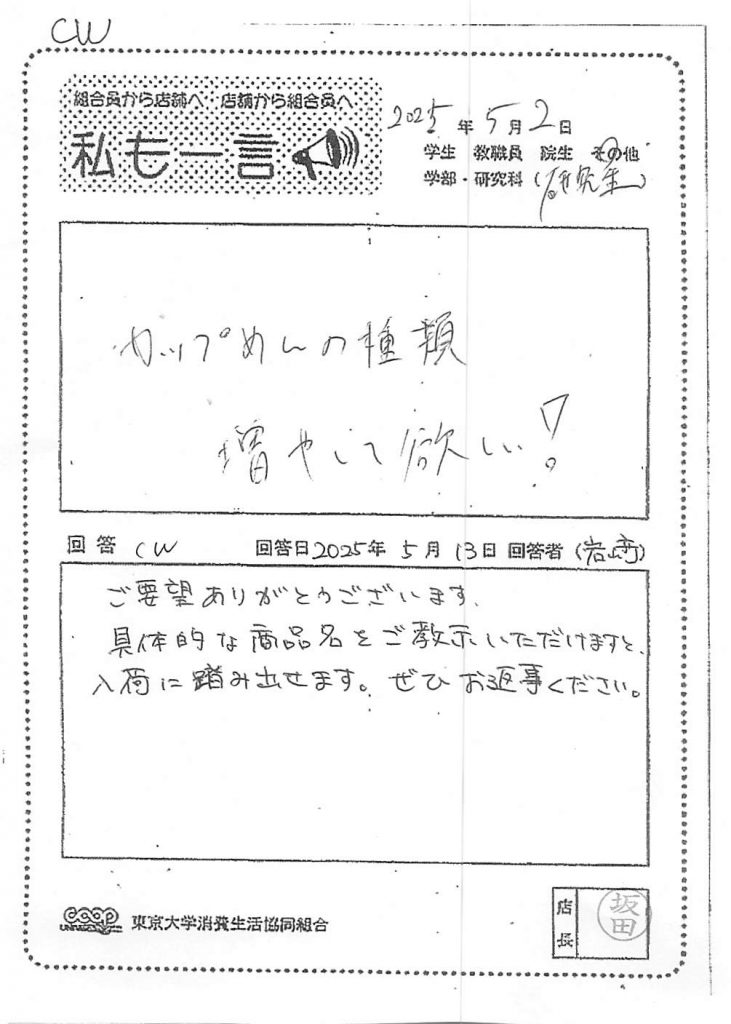 CW
組合員から店舗へ・店舗から組合員へ
私も一言
2025年5月2日
学生 教職員 院生 その他
学部・研究科(研究生)
カップめんの種類
増やして欲しい!
回答 CW 回答日2025年5月13日 回答者(岩崎)
ご要望ありがとうございます。
具体的な商品名をご教示いただけますと、
入荷に踏み出せます。ぜひお返事ください。
coop 東京大学消費生活協同組合
店長
坂田